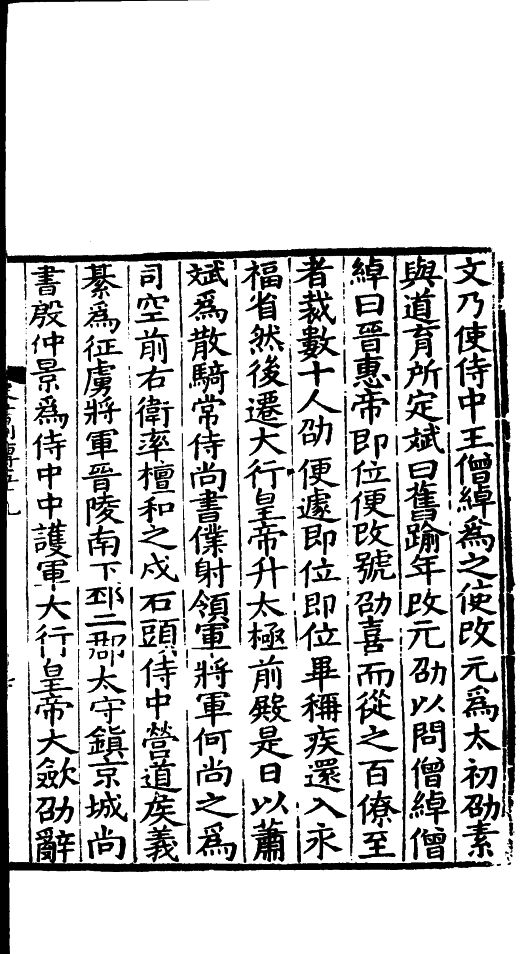 文乃使侍中王僧綽爲之使改元爲太初劭素
與道育所定斌曰舊踰年改元劭以問僧綽僧
綽曰晉惠帝即位便改號劭喜而從之百僚至
者裁數十人劭便遽即位即位畢稱疾還入永
福省然後遷大行皇帝升太極前殿是日以蕭
斌爲散騎常侍尚書僕射領軍將軍何尚之爲
司空前右衛率檀和之戍石頭侍中營道侯義
綦爲征虜將軍晉陵南下邳二郡太守鎮京城尚
書殷仲景爲侍中中護軍大行皇帝大歛劭辭